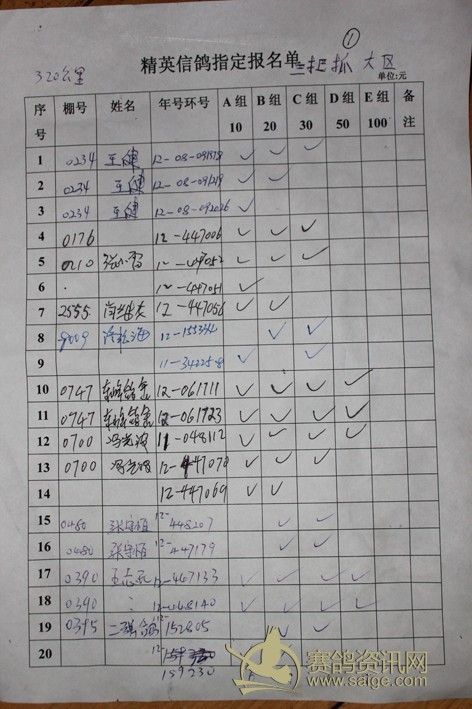 ①
320公里
精英信鸽指定报名单 三把抓 大区
单位:元
序号 棚号 姓名 年号环号 A组 10 B组 20 C组 30 D组 50 E组 100 备注
1 0234 王健 12-08-091578 ✓ ✓ ✓
2 0234 王健 12-08-091219 ✓ ✓
3 0234 王健 12-08-092026 ✓
4 0176 12-447006 ✓ ✓ ✓
5 0210 12-447052 ✓ ✓ ✓
6 12-447051 ✓
7 2555 12-447056 ✓ ✓
8 9009 12-155334 ✓ ✓
9 11-342258 ✓ ✓
10 0747 12-061711 ✓ ✓ ✓ ✓
11 0747 12-061723 ✓ ✓ ✓ ✓
12 0700 11-048112 ✓ ✓ ✓ ✓
13 0700 12-447070 ✓ ✓ ✓
14 12-447069 ✓ ✓
15 0480 张守恒 12-448207 ✓ ✓
16 0480 张守恒 12-447179 ✓ ✓
17 0390 12-467133 ✓ ✓ ✓ ✓
18 0390 12-068140 ✓ ✓ ✓ ✓
19 0395 12-152805 ✓ ✓
20 12-
159230
赛鸽资讯网
www.saige.com